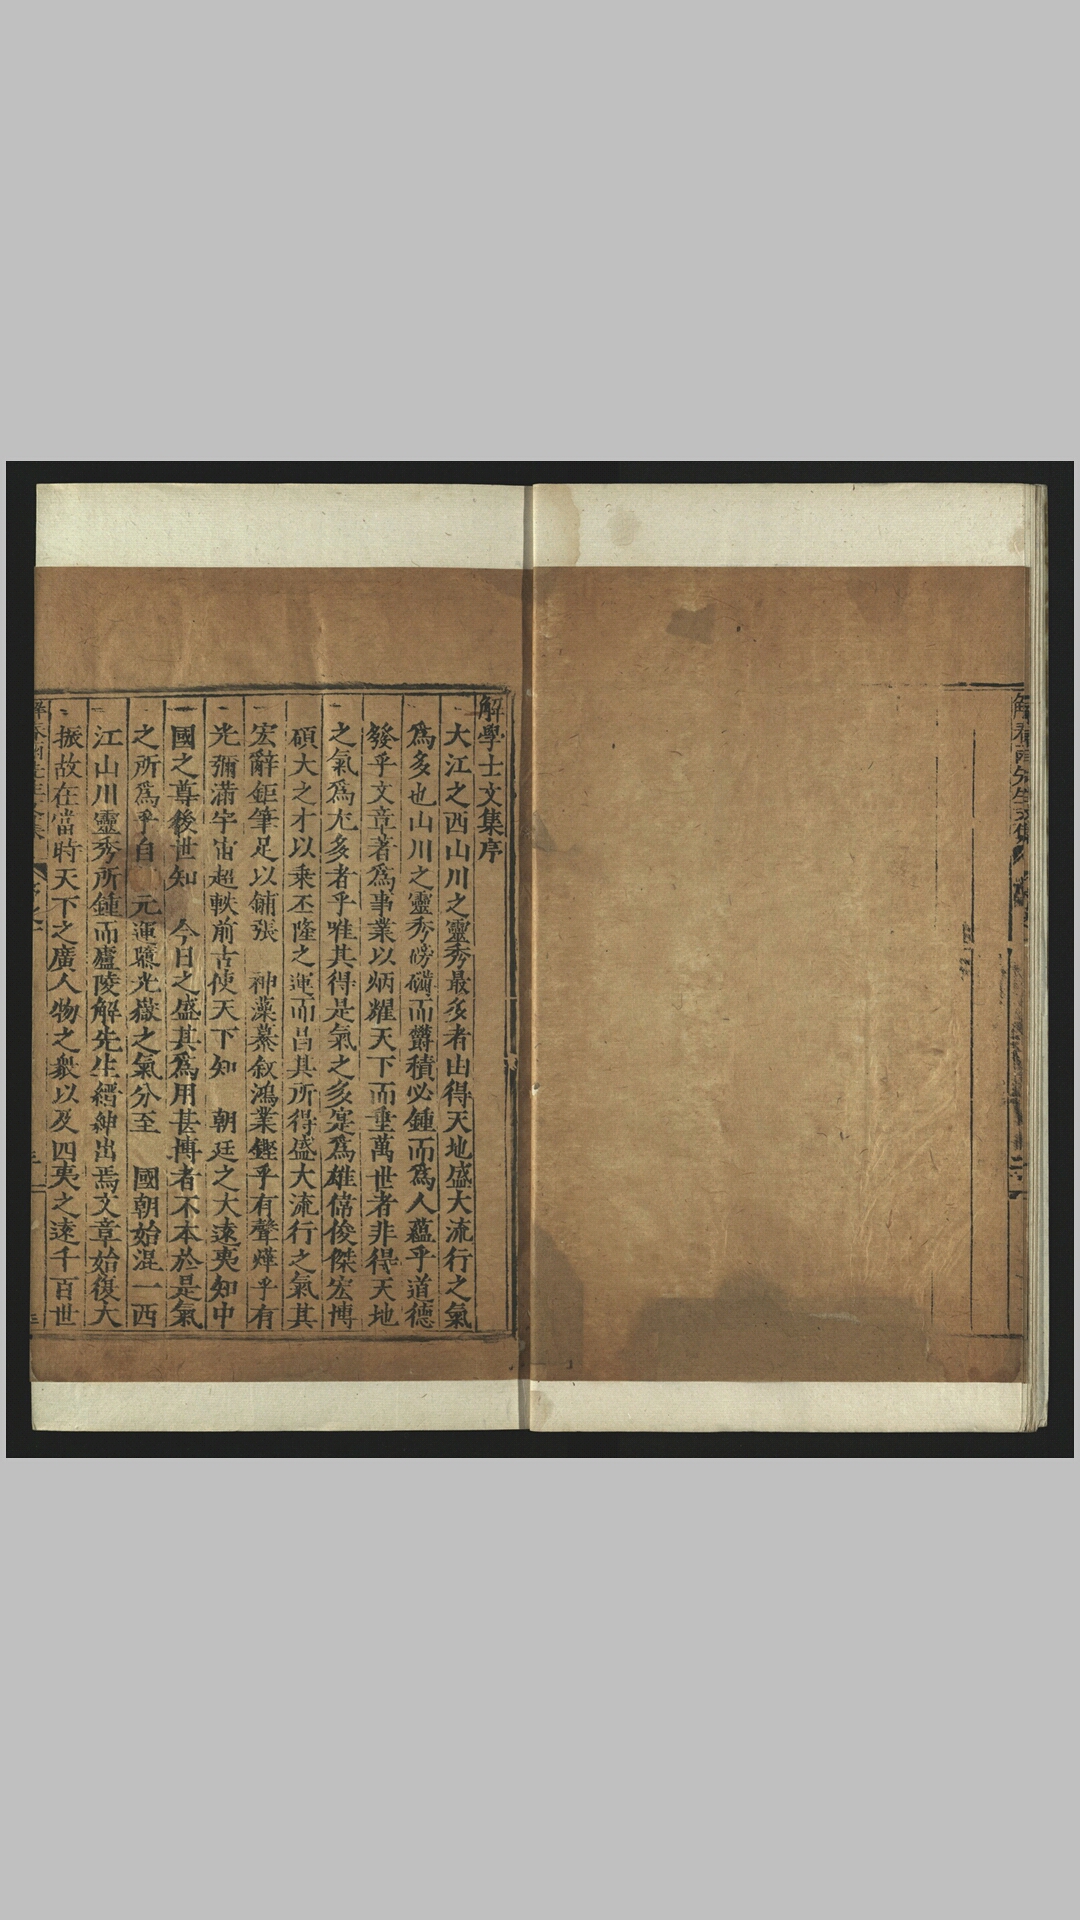 解學士文集序
大江之西山川之靈秀最多者由得天地盛大流行之氣
爲多也山川之靈秀磅礴而欝積必鍾而爲人蘊乎道德
發乎文章著爲事業以炳耀天下而垂萬世者非得天地
之氣爲尤多者乎唯其得是氣之多寔爲雄偉俊傑宏博
碩大之才以乗丕隆之運而昌其所得盛大流行之氣其
宏辭鉅筆足以鋪張 神藻纂叙鴻業鏗乎有聲燁乎有
光彌滿宇宙超軼前古使天下知 朝廷之大遠夷知中
國之尊後世知 今日之盛其爲用甚博者不本於是氣
之所爲乎自 元運隳光嶽之氣分至 國朝始混一西
江山川靈秀所鍾而廬陵解先生縉紳出焉文章始復大
振故在當時天下之廣人物之衆以及四夷之遠千百世